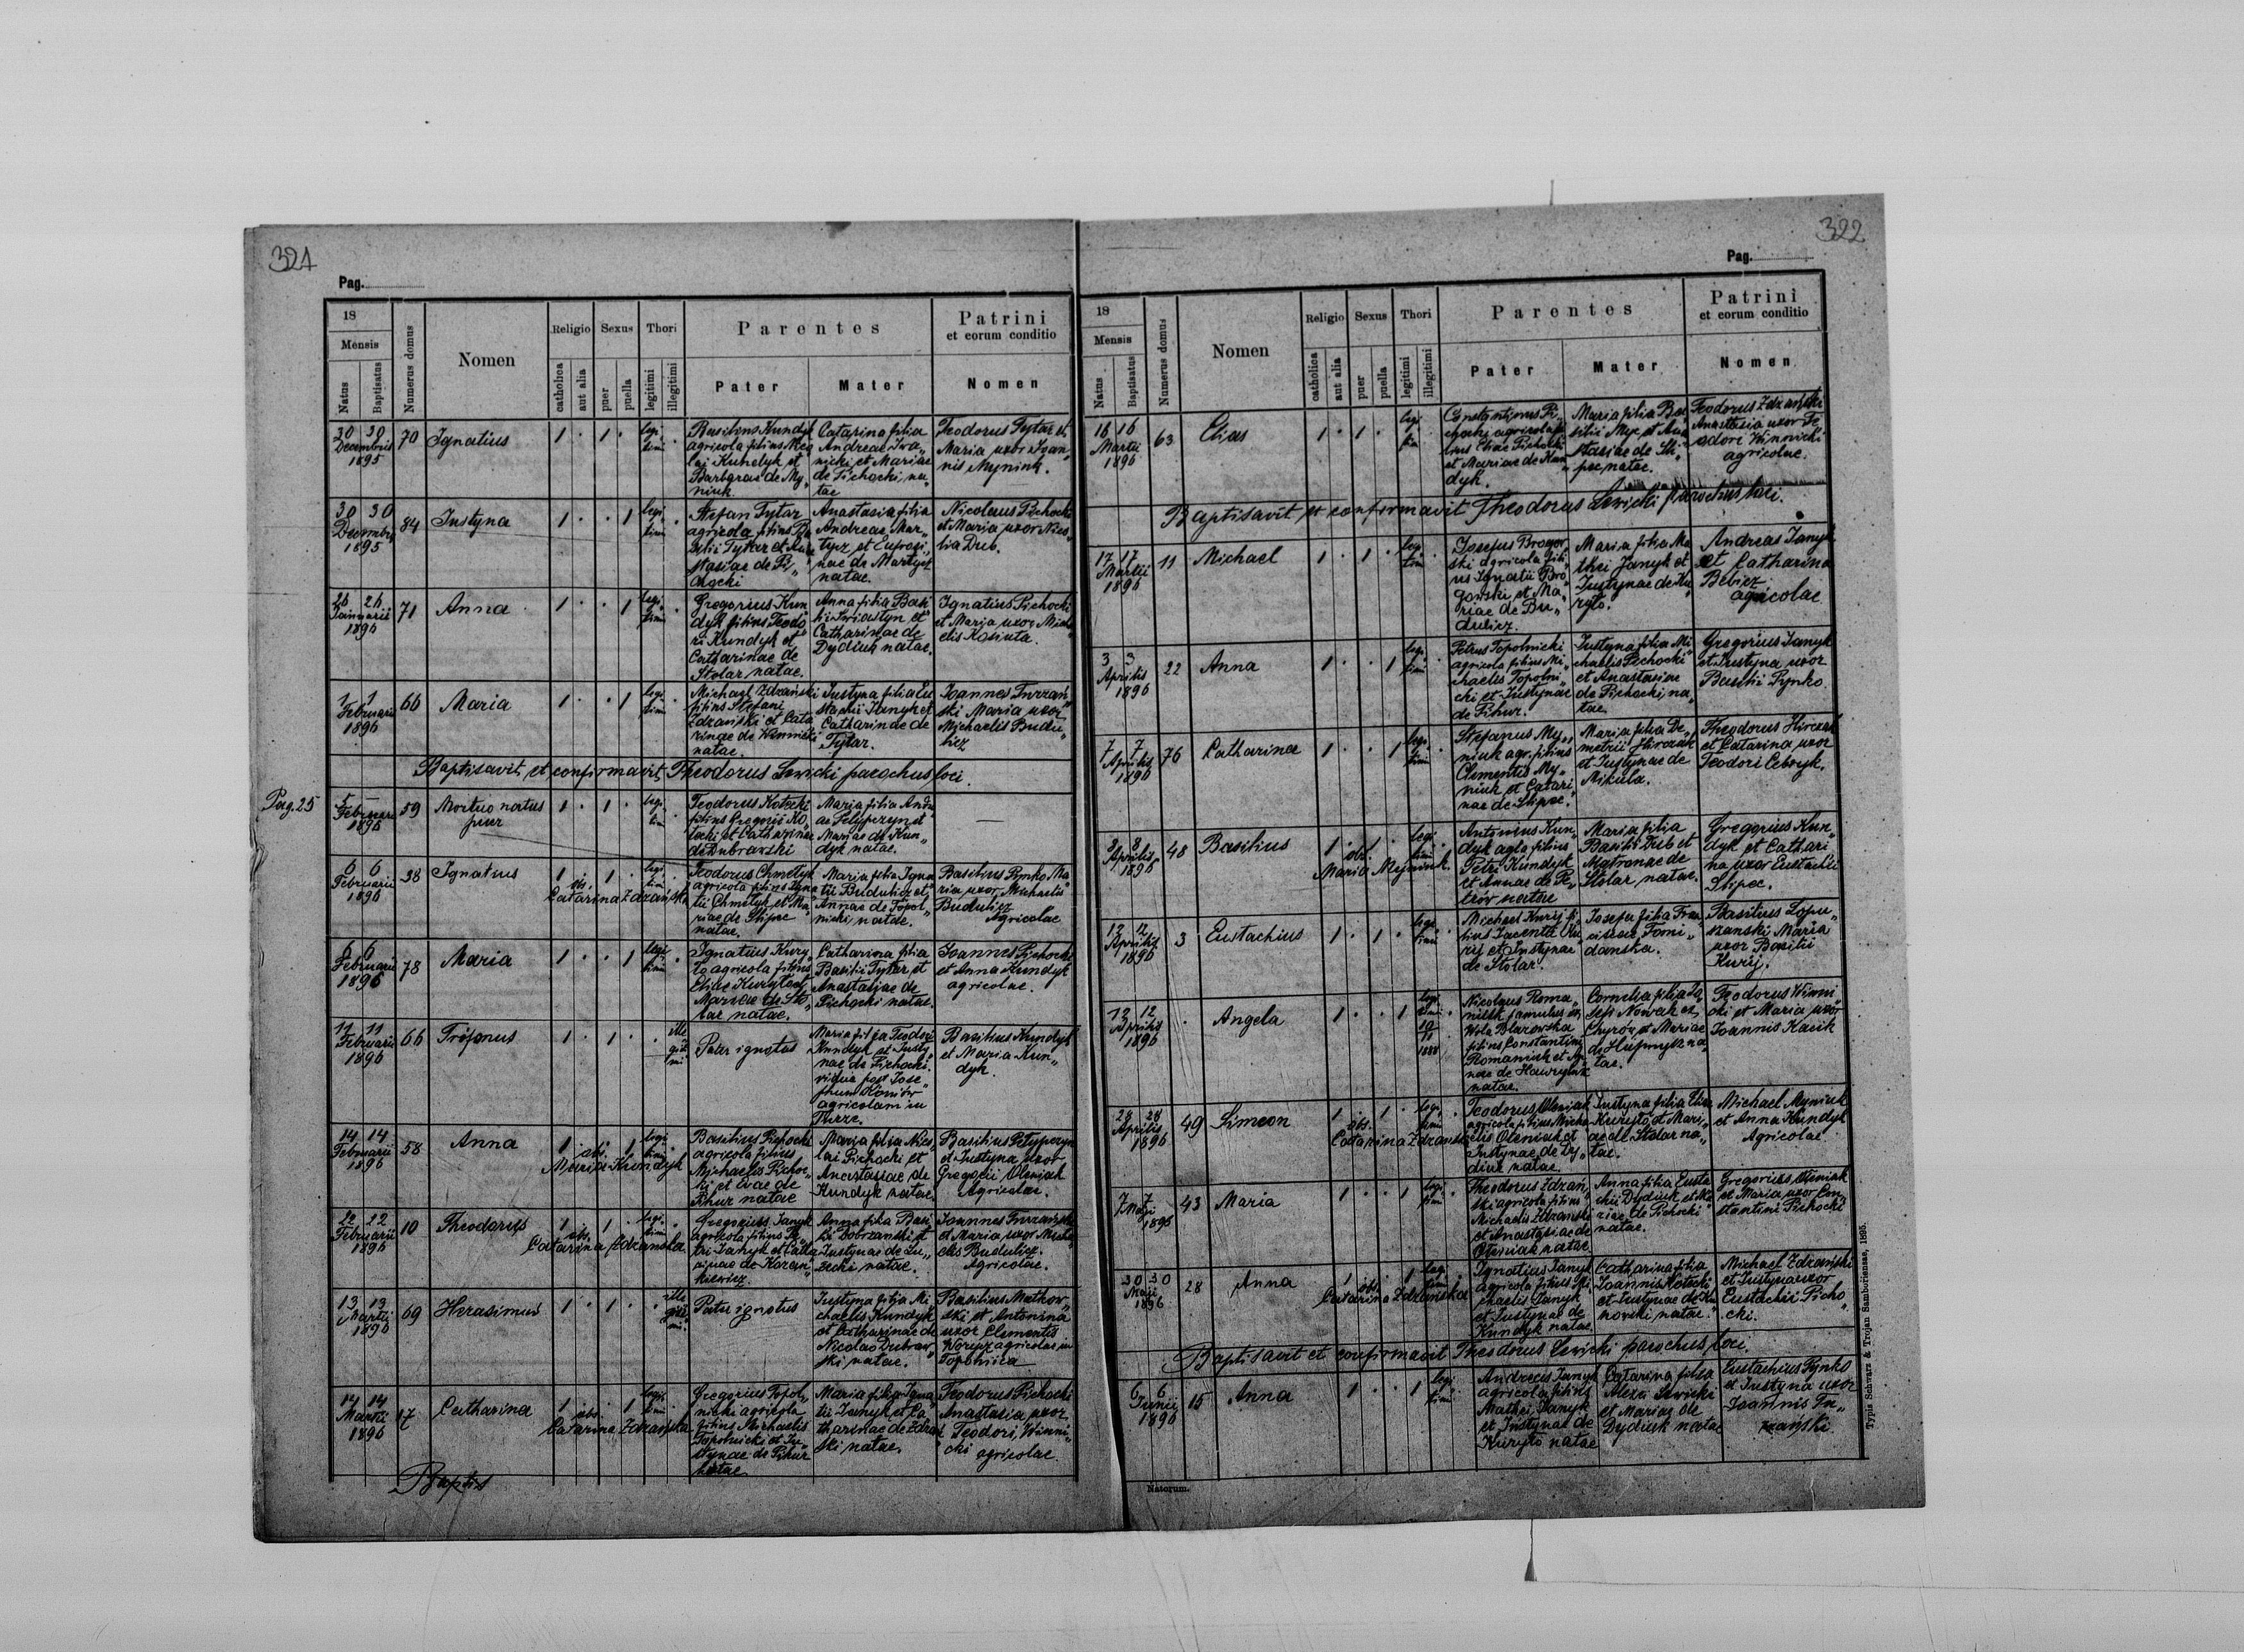 321
Pag.
18
Mensis
Natus
Baptisatus
Numerus domus
Nomen
Religio
catholica
aut alia
Sexus
puer
puella
Thori
legitimi
illegitimi
Parentes
Pater
Mater
Patrini
et eorum conditio
Nomen
30 30
Decembris
1895
70
Ignatius
1 . 1 .
legi
timi
Basilius Kundyk
agricola filius Nico
lai Kundyk et
Barbarae de My„
niuk.
Catarina filia
Andreae Iwa„
nicki et Mariae
de Pichocki, na„
tae
Teodorus Tytar et
Maria uxor Ioan„
nis Myniuk.
30 30
Decembris
1895
84
Justyna
1 . . 1
legi
timi
Stefan Tytar
agricola filius Ba
silii Tytar et Ana
stasiae de Pi„
chocki
Anastasia filia
Andreae Mar„
tycz et Eufrosi„
nae de Martycz
natae.
Nicolaus Pichocki
et Maria uxor Nico„
lai Dub.
26 26
Januarii
1896
71
Anna
1 . . 1
legi
timi
Gregorius Kun„
dyk filius Teodo
ri Kundyk et
Catharinae de
Stolar natae.
Anna filia Basi
lii et
Catharinae de
Dydiuk natae.
Ignatius Pichocki
et Maria uxor Mich
aelis Kosiuta.
1 1
Februarii
1896
66
Maria
1 . . 1
legi
timi
Michael Zdzański
filius Stefani
Zdzański et Cata
rinae de Winnicki
natae.
Justyna filia Eu
stachii Janyk et
Catharinae de
Tytar.
Joannes Turzań
ski Maria uxor
Michaelis Budu„
licz
Baptisavit et confirmavit Theodorus Lewicki parochus loci.
Pag. 25
5 —
Februarii
1896
59
Mortuo natus
puer
1 . 1 .
legi
tim
Teodorus Kotecki
filius Gregorii Ko„
tecki et Catharinae
de Dubrawski
Maria filia Andre
ae Pelypczyn et
Mariae de Kun„
dyk natae.
—
6 6
Februarii
1896
38
Ignatius
1 . 1 .
obs.
Catarina Zdzańska
legi
timi
Teodorus Chmelyk
agricola filius Igna
tii Chmelyk et Ma„
riae de Slipec
natae.
Maria filia Igna
tii Budulicz et
Annae de Topol„
nicki, natae.
Basilius Pynko Ma„
ria uxor Michaelis
Budulicz
Agricolae
6 6
Februarii
1896
78
Maria
1 . . 1
legi
timi
Ignatius Kury„
to agricola filius
Eliae Kuryto et
Mariae de Sto„
lar natae.
Catharina filia
Basilii Tytar et
Anastasiae de
Pichocki natae.
Joannes Pichocki
et Anna Kundyk
agricolae.
11 11
Februarii
1896
66
Trofonus
1 . 1 .
ille
giti
mi
Pater ignotus
Maria filia Teodori
Kundyk et Justy„
nae de Pichocki
vidua post Jose„
phum
agricolam in
Basilius Kundyk
et Maria Kun„
dyk.
14 14
Februarii
1896
58
Anna
1 . . 1
obs.
Maria Kundyk
legi
timi
Basilius Pichocki
agricola filius
Michaelis Pichoc„
ki et Evae de
Pihur natae
Maria filia Nico„
lai Pichocki et
Anastasiae de
Kundyk natae.
Basilius Pelypczyn
et Justyna uxor
Gregorii Oleniak
Agricolae.
22 22
Februarii
1896
10
Theodorus
1 . 1 .
obs.
Catarina Zdzańska
legi
timi
Gregorius Janyk
agricola filius Pe„
tri Janyk et Catha
rinae de Kozan„
kiewicz.
Anna filia Basi
lii Dobrzanski et
Justynae de Lu„
zecki natae.
Joannes Turzański
et Maria uxor Micha
elis Budulicz.
Agricolae.
13 13
Martii
1896
69
Herasimus
1 . 1 .
ille
giti
mi.
Pater ignotus
Justyna filia Mi
chaelis Kundyk
et Catharinae de
Nicolao Dubraw„
ski natae.
Basilius Matkow„
ski et Antonina
uxor Clementis
agricolae in
Topolnica
14 14
Martii
1896
17
Catharina
1 . . 1
obs.
Catarina Zdzańska
legi
timi
Gregorius Topol„
nicki agricola
filius Michaelis
Topolnicki et Ju„
stynae de Pihur
natae
Maria filia Igna
tii Janyk et Ca„
tharinae de Zdzań
ski natae.
Teodorus Pichocki
Anastasia uxor
Teodori Winni„
cki agricolae.
Baptis
322
Pag.
18
Mensis
Natus
Baptisatus
Numerus domus
Nomen
Religio
catholica
aut alia
Sexus
puer
puella
Thori
legitimi
illegitimi
Parentes
Pater
Mater
Patrini
et eorum conditio
Nomen
16 16
Martii
1896
63
Elias
1 . 1 .
legi
tim
Constantinus Pi„
chocki agricola fi
lius Eliae Pichocki
et Mariae de Kun„
dyk.
Maria filia Ba
silii Myc et Ana
stasiae de Sli„
pec natae.
Teodorus Zdzański
Anastasia uxor Te
odori Winnicki
agricolae.
Baptisavit et confirmavit Theodorus Lewicki parochus loci.
17 17
Martii
1896
11
Michael
1 . 1 .
legi
timi
Josefus Brogow
ski agricola fili
us Ignatii Bro
gowski et Ma„
riae de Bu„
dulicz.
Maria filia Ma
thei Janyk et
Justynae de Ku„
ryto.
Andreas Janyk
et Catharina
Bebicz
agricolae
3 3
Aprilis
1896
22
Anna
1 . . 1
legi
timi
Petrus Topolnicki
agricola filius Mi„
chaelis Topolni„
cki et Justynae
de Pihur.
Justyna filia Mi„
chaelis Pichocki
et Anastasiae
de Pichocki, na„
tae.
Gregorius Janyk
et Justyna uxor
Basilii Pynko.
7 7
Aprilis
1896
76
Catharina
1 . . 1
legi
timi
Stefanus My„
niuk agr. filius
Clementis My„
niuk et Catari„
nae de Slipec.
Maria filia De„
metrii Hirczak
et Justynae de
Mikula.
Theodorus Hirczak
et Catarina uxor
Teodori Cebryk.
8 8
Aprilis
1896
48
Basilius
1 . 1 .
obs.
Maria Myniuk.
legi
timi
Antonius Kun„
dyk agla filius
Petri Kundyk
et Annae de Pe„
trów natae
Maria filia
Basilii Dub et
Matronae de
Stolar natae.
Gregorius Kun„
dyk et Cathari
na uxor Eustachii
Slipec.
12 12
Aprilis
1896
3
Eustachius
1 . 1 .
legi
timi
Michael Kurij fi„
lius Jacenti Ku
rij et Justynae
de Stolar.
Josefa filia Fran
ciscae Tomi„
danska.
Basilius Lopu„
szanski Maria
uxor Basilii
Kurij.
12 12
Aprilis
1896
.
Angela
1 . . 1
legi
timi
1888
Nicolaus Roma„
niuk famulus ex
Wola Blazowska
filius Constantini
Romaniuk et An„
nae de
natae.
Cornelia filia Jo„
sefi Nowak ex
Chyrów et Mariae
de na„
tae.
Teodorus Winni
cki et Maria uxor
Joannis Kacik
28 28
Aprilis
1896
49
Simeon
1 . 1 .
obs.
Catarina Zdzanska
legi
timi
Teodorus Oleniak
agricola filius Micha
elis Oleniak et
Justynae de Dy„
diuk natae.
Justyna filia Eliae
Kuryto et Mari„
ae de Stolar na„
tae.
Michael Myniuk
et Anna Kundyk
Agricolae
7 7
Maji
1896
43
Maria
1 . . 1
legi
timi
Theodorus Zdzań„
ski agricola filius
Michaelis Zdzanski
et Anastasiae de
Oleniak natae
Anna filia Eusta
chii Dydiuk et Ma
riae de Pichocki
natae.
Gregorius Oleniak
et Maria uxor Con„
stantini Pichocki
30 30
Maji
1896
28
Anna
1 . . 1
obs.
Catarina Zdzańska
legi
timi
Ignatius Janyk
agricola filius Mi
chaelis Janyk
et Justynae de
Kundyk natae.
Catharina filia
Joannis Kotecki
et Justynae de
natae.
Michael Zdzański
et Justyna uxor
Eustachii Picho„
cki.
Baptisavit et confirmavit Theodorus Lewicki parochus loci
6 6
Junii
1896
15
Anna
1 . . 1
legi
timi
Andreas Janyk
agricola filius
Mathei Janyk
et Justynae de
Kuryto natae
Catarina filia
Alexii Lewicki
et Mariae de
Dydiuk natae
Eustachius Pynko
et Justyna uxor
Joannis Tu„
rzański.
Natorum.
Typis Schwarz & Trojan Samboriense, 1895.